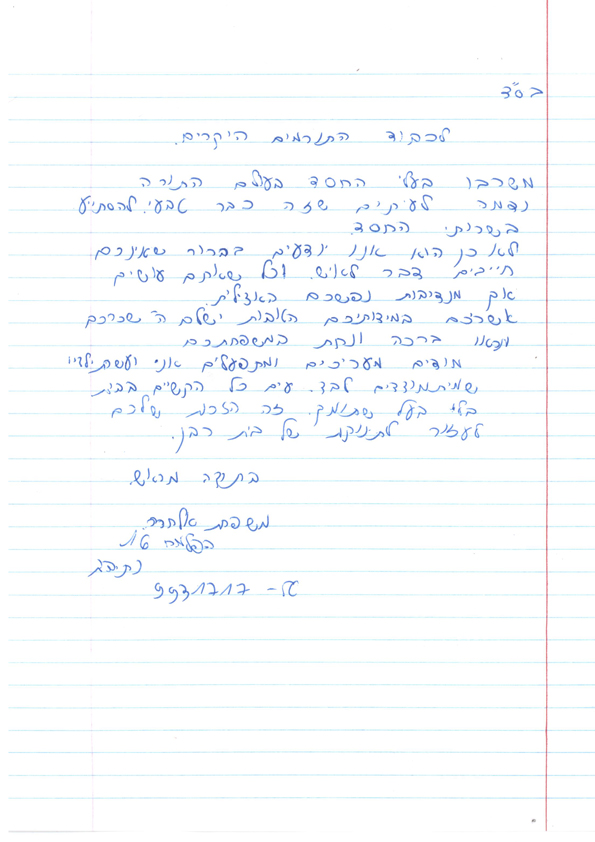 בס"ד
לכבוד התורמים היקרים.
משרבו בעלי החסד בעולם התורה
נדמה לעיתים שזה כבר טבעי להסתייע
בשרותי החסד.
לא כן הוא אנו יודעים בברור שאינכם
חייבים דבר לאיש. וכל שאתם עושים
אך מנדיבות נפשכם האצילית.
אשרכם במידותיכם הטובות ישלם ה' שכרכם
ברכה ונחת במשפחתכם
מודים מעריכים ומתפעלים אני ועשרת ילדיי
שמיתמודדים לבד. עים כל הקשיים בבית
בלי בעל שתומך. זה הזכות שלכם
לעזור לתינוקות של בית רבן.
בתודה מראש.
משפחת
הפלמח
טל- 9931717